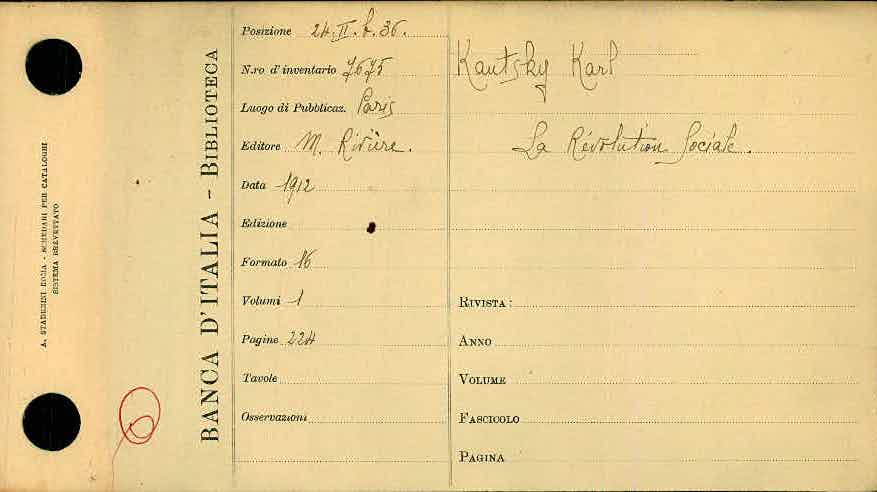 A. STADERINI ROMA - SCHEDARI PER CATALOGHI
SISTEMA BREVETTATO
BANCA D'ITALIA - BIBLIOTECA
Posizione 24.II.b.36.
N.ro d'inventario 7675
Luogo di Pubblicaz. Paris
Editore M. Rivière.
Data 1912
Edizione
Formato 16
Volumi 1
Pagine 224
Tavole
Osservazioni
Kautsky Karl
La Révolution Sociale.
RIVISTA:
ANNO
VOLUME
FASCICOLO
PAGINA